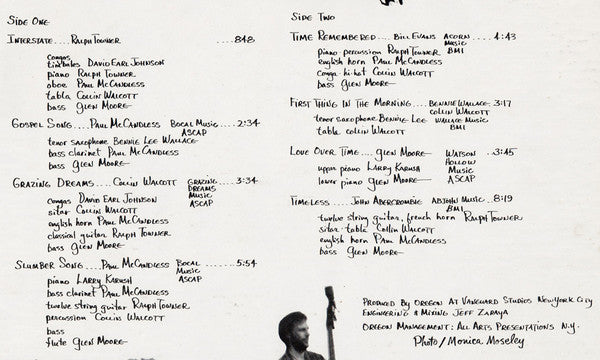 SIDE ONE
INTERSTATE....RALPH TOWNER ....8:48
congas
timbales DAVID EARL JOHNSON
piano RALPH TOWNER
oboe PAUL McCANDLESS
tabla COLLIN WALCOTT
bass GLEN MOORE
GOSPEL SONG....PAUL McCANDLESS BOCAL MUSIC ....2:34
ASCAP
tenor saxophone BENNIE LEE WALLACE
bass clarinet PAUL McCANDLESS
bass GLEN MOORE
GRAZING DREAMS....COLLIN WALCOTT GRAZING ....3:34
DREAMS
MUSIC
ASCAP
congas DAVID EARL JOHNSON
sitar COLLIN WALCOTT
english horn PAUL McCANDLESS
classical guitar RALPH TOWNER
bass GLEN MOORE
SLUMBER SONG....PAUL McCANDLESS BOCAL ....5:54
MUSIC
ASCAP
piano LARRY KARUSH
bass clarinet PAUL McCANDLESS
twelve string guitar RALPH TOWNER
percussion COLLIN WALCOTT
bass
flute GLEN MOORE
SIDE TWO
TIME REMEMBERED... BILL EVANS ACORN ....4:43
MUSIC
BMI
piano-percussion RALPH TOWNER
english horn PAUL McCANDLESS
conga-hi-hat COLLIN WALCOTT
bass GLEN MOORE
FIRST THING IN THE MORNING.... BENNIE WALLACE 3:17
COLLIN WALCOTT
tenor saxophone BENNIE LEE WALLACE MUSIC
BMI
tabla COLLIN WALCOTT
LOVE OVER TIME.... GLEN MOORE WATSON ...3:45
HOLLOW
MUSIC
ASCAP
upper piano LARRY KARUSH
lower piano GLEN MOORE
TIMELESS.... JOHN ABERCROMBIE ABJOHN MUSIC .. 8:19
BMI
twelve string guitar, french horn RALPH TOWNER
sitar-tabla COLLIN WALCOTT
english horn PAUL McCANDLESS
bass GLEN MOORE
PRODUCED BY OREGON AT VANGUARD STUDIOS NEW YORK CITY
ENGINEERING & MIXING JEFF ZARAYA
OREGON MANAGEMENT: ALL ARTS PRESENTATIONS N.Y.
Photo/Monica Moseley